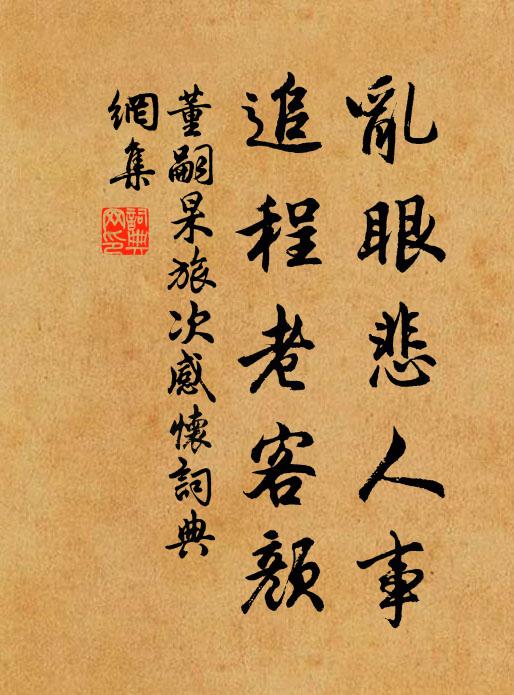 亂眼悲人事
追程老客顏
董嗣杲旅次感懷詞典
網集
詞典
网印